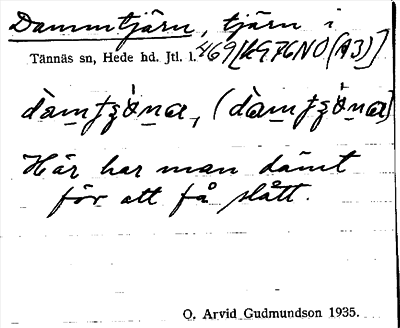 Dammtjärn, tjärn i
Tännäs sn, Hede hd. Jtl. l. 469 [UG76NO (A3)]
Här har man dämt
för att få slått.
O. Arvid Gudmundson 1935.